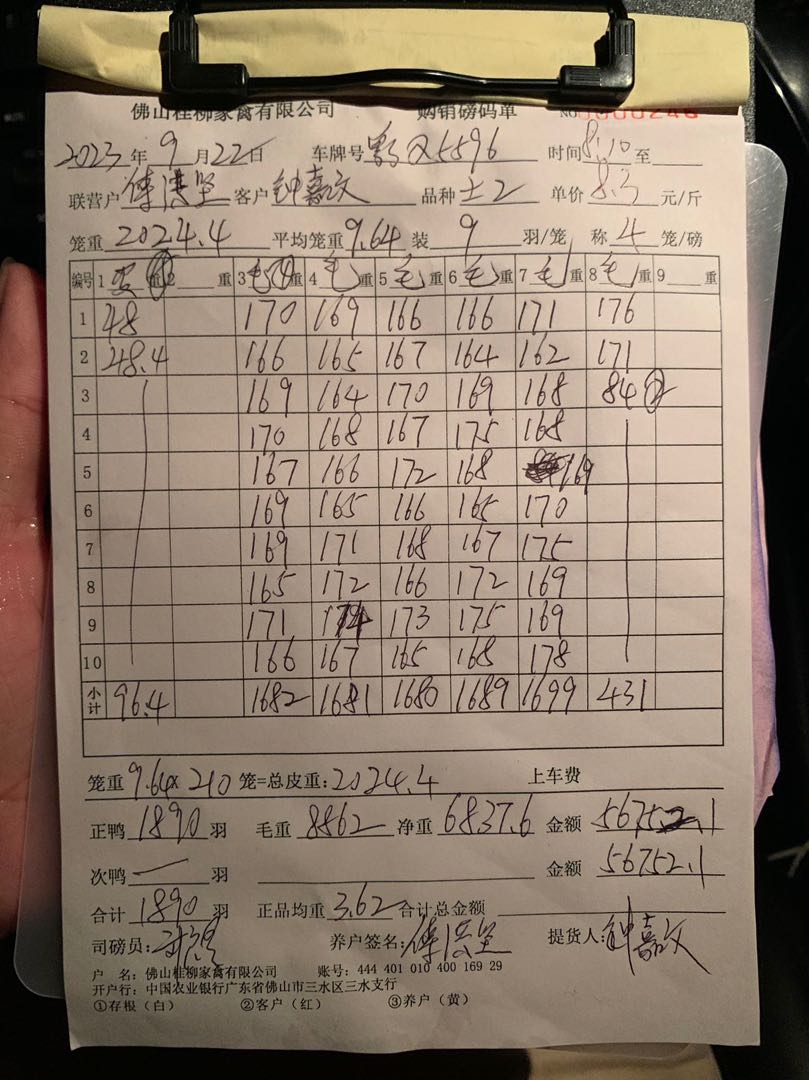 佛山桂柳家禽有限公司 购销磅码单 NO 0000246
2023年9月22日 车牌号 粤 5596 时间 8:10 至
联营户 傅洪坚 客户 钟嘉文 品种 土2 单价 8.3 元/斤
笼重 2024.4 平均笼重 9.64 装 9 羽/笼 称 4 笼/磅
编号 1 皮重 2 重 3 毛④重 4 毛重 5 毛重 6 毛重 7 毛重 8 毛重 9 重
1 48 170 169 166 166 171 176
2 48.4 166 165 167 164 162 171
3 169 164 170 169 168 84②
4 170 168 167 175 168
5 167 166 172 168 169
6 169 165 166 165 170
7 169 171 168 167 175
8 165 172 166 172 169
9 171 174 173 175 169
10 166 167 165 168 178
小计 96.4 1682 1681 1680 1689 1699 431
笼重 9.64×210 笼=总皮重:2024.4 上车费
正鸭 1890 羽 毛重 8862 净重 6837.6 金额 56752.1
次鸭 一 羽 金额 56752.1
合计 1890 羽 正品均重 3.62 合计总金额
司磅员: 养户签名:傅洪坚 提货人:钟嘉文
户 名:佛山桂柳家禽有限公司 账号:444 401 010 400 169 29
开户行:中国农业银行广东省佛山市三水区三水支行
①存根(白) ②客户(红) ③养户(黄)